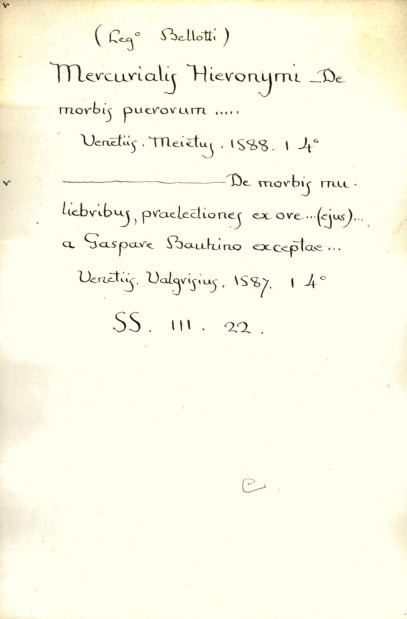 v
(Leg° Bellotti)
Mercurialis Hieronymi - De
morbis puerorum .....
Venetiis. Meietus. 1588. 1 4°
v ———— De morbis mu-
liebribus, praelectiones ex ore...(ejus)...
a Gaspare Bauhino exceptae...
Venetiis. Valgrisius. 1587. 1 4°
SS. III. 22.